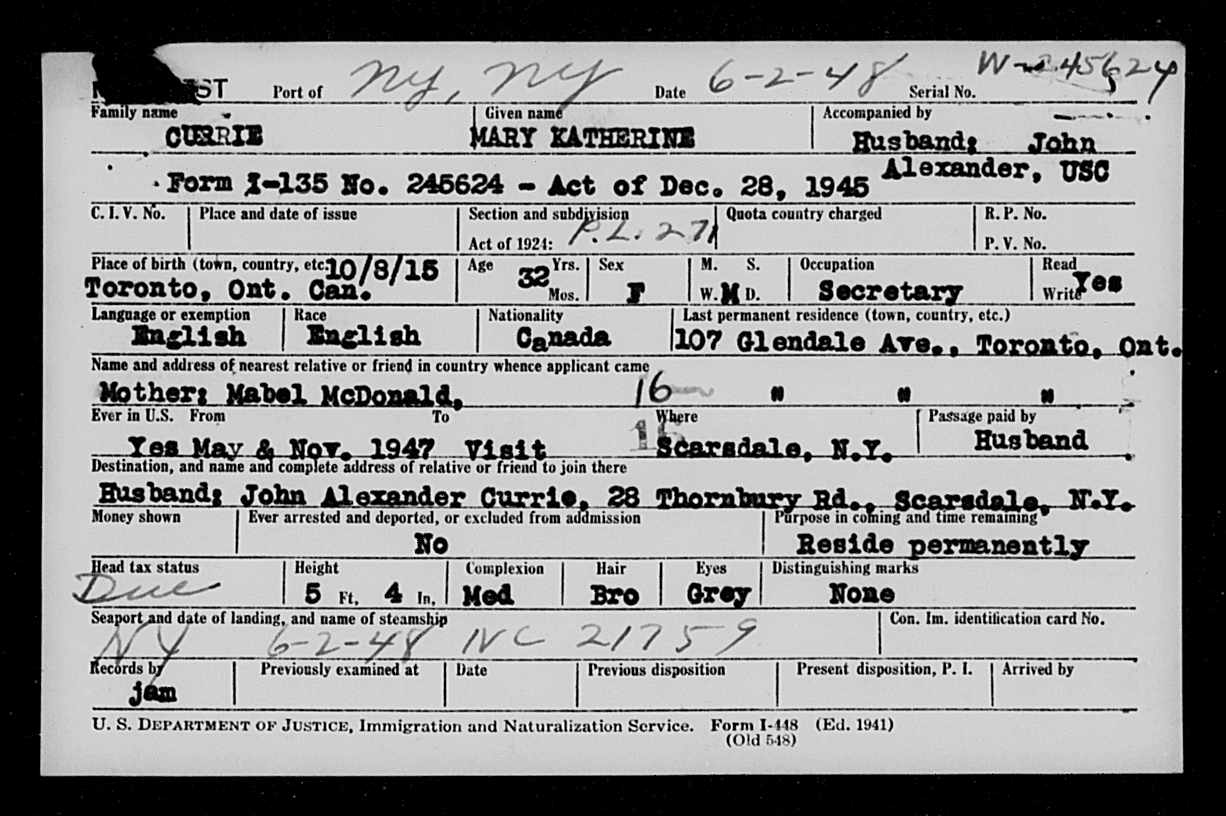 Port of NY, NY Date 6-2-48 Serial No. W-245624
Family name Given name Accompanied by
CURRIE MARY KATHERINE Husband; John
Alexander, USC
Form I-135 No. 245624 - Act of Dec. 28, 1945
C. I. V. No. Place and date of issue Section and subdivision Quota country charged R. P. No.
Act of 1924: P.L. 271 P. V. No.
Place of birth (town, country, etc. 10/8/15 Age 32 Yrs. Sex M. S. Occupation Read Yes
Toronto, Ont. Can. Mos. F W. M D. Secretary Write
Language or exemption Race Nationality Last permanent residence (town, country, etc.)
English English Canada 107 Glendale Ave., Toronto, Ont.
Name and address of nearest relative or friend in country whence applicant came
Mother; Mabel McDonald, 16 " " "
Ever in U.S. From To Where Passage paid by
Yes May & Nov. 1947 Visit Scarsdale, N.Y. Husband
Destination, and name and complete address of relative or friend to join there
Husband; John Alexander Currie, 28 Thornbury Rd., Scarsdale, N.Y.
Money shown Ever arrested and deported, or excluded from addmission Purpose in coming and time remaining
No Reside permanently
Head tax status Height Complexion Hair Eyes Distinguishing marks
Due 5 Ft. 4 In. Med Bro Grey None
Seaport and date of landing, and name of steamship Con. Im. identification card No.
NY 6-2-48 NC 21759
Records by Previously examined at Date Previous disposition Present disposition, P. I. Arrived by
jam
U. S. DEPARTMENT OF JUSTICE, Immigration and Naturalization Service. Form I-448 (Ed. 1941)
(Old 548)